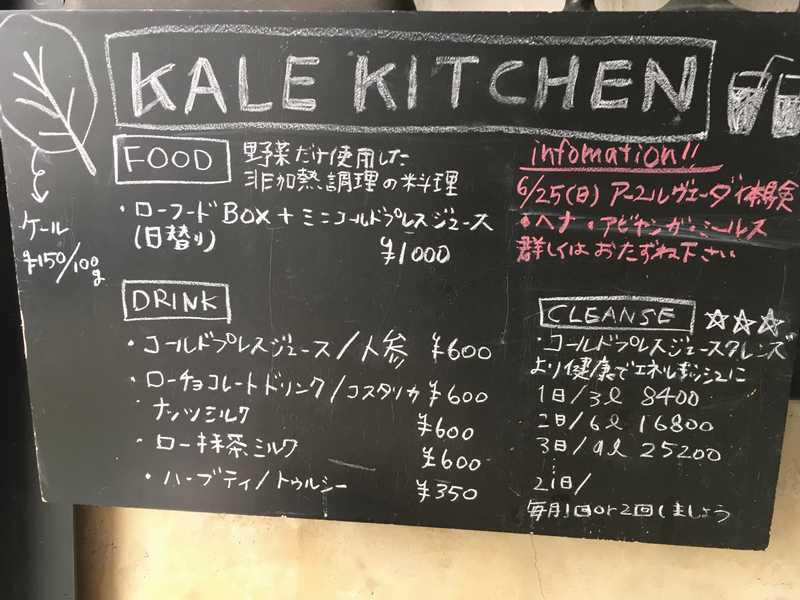 KALE KITCHEN
ケール
¥150/100g
FOOD
野菜だけ使用した
非加熱調理の料理
・ローフードBOX+ミニコールドプレスジュース
(日替り)
¥1000
DRINK
・コールドプレスジュース/人参 ¥600
・ローチョコレートドリンク/コスタリカ ¥600
・ナッツミルク ¥600
・ロー抹茶ミルク ¥600
・ハーブティ/トゥルシー ¥350
infomation!!
6/25(日) アーユルヴェーダ体験
・ヘナ・アビヤンガ・ミールス
詳しくはおたずね下さい
CLEANSE ☆☆☆
・コールドプレスジュースクレンズ
より健康でエネルギッシュに
1日/3ℓ 8400
2日/6ℓ 16800
3日/9ℓ 25200
⋮
21日/
毎月1回or2回しましょう